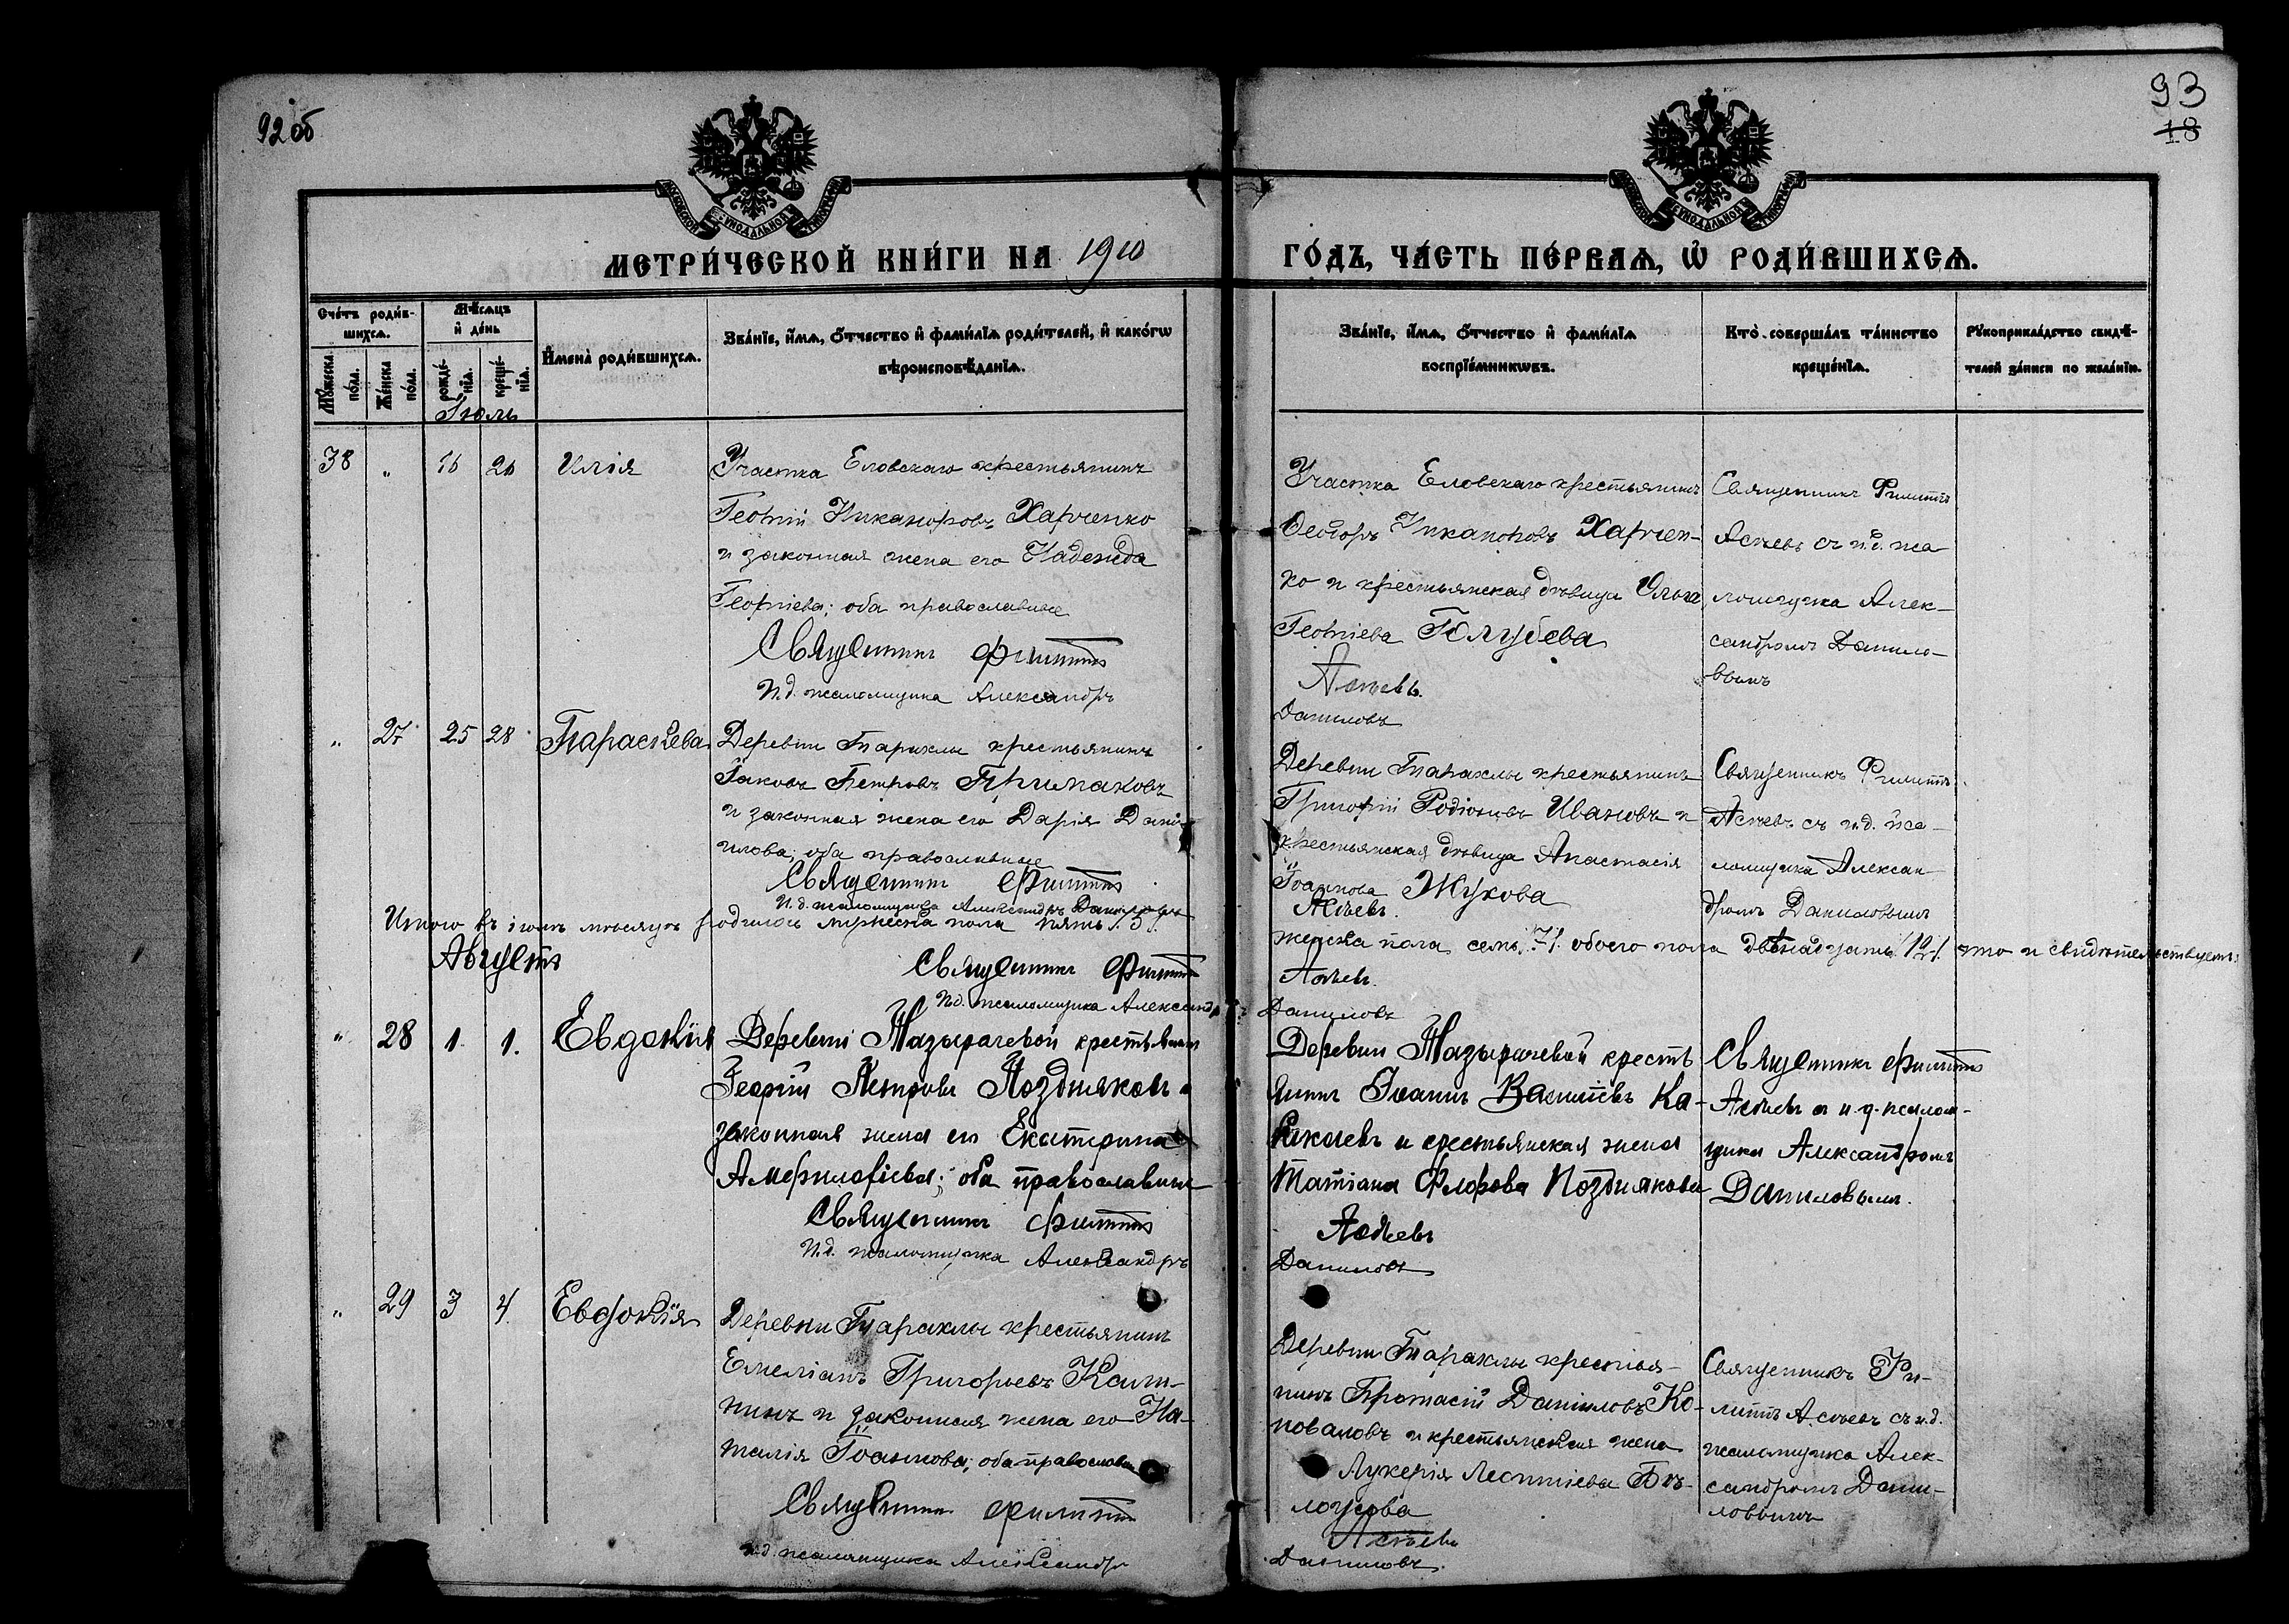 92 об
93
18
МЕТРИ́ЧЕСКОЙ КНИ́ГИ НА 1910 ГО́ДЪ, ЧА́СТЬ ПЕ́РВАѦ, Ѡ҆ РОДИ́ВШИХСѦ.
Сче́тъ роди́в-
шихсѧ.
Мѣ́сѧцъ
и҆ де́нь
Мꙋ́жеска
по́ла.
Же́нска
по́ла.
рожде́-
нїѧ.
креще́-
нїѧ.
И҆мена̀ роди́вшихсѧ.
Зва́нїе, и҆́мѧ, ѻ҆́тчество и҆ фами́лїѧ роди́телей, и҆ како́гѡ
вѣроисповѣ́данїѧ.
Зва́нїе, и҆́мѧ, ѻ҆́тчество и҆ фами́лїѧ
воспрїе́мникѡвъ.
Кто̀ соверша́лъ та́инство
креще́нїѧ.
Рꙋкоприкла́дство свидѣ́-
телей за́писи по жела́нїю.
Іюль
38 " 16 20 Илія
Участка Еловскаго крестьянинъ
Георгій Никаноровъ Харченко
и законная жена его Надежда
Георгіева; оба православные
Священникъ Филиппъ
И.д. псаломщика Александръ
Участка Еловскаго крестьянинъ
Ѳеодоръ Никаноровъ Харчен-
ко и крестьянская дѣвица Ольга
Георгіева Голубева
Асѣевъ.
Даниловъ
Священникъ Филиппъ
Асѣевъ съ и.д. пса
ломщика Алек-
сандромъ Данило-
вымъ
" 27 25 28 Параскева
Деревни Тараклы крестьянинъ
Іаковъ Петровъ Примаковъ
и законная жена его Дарія Дані-
илова; оба православные
Священникъ Филиппъ
И.д. псаломщика Александръ Даниловъ
Деревни Тараклы крестьянинъ
Григорій Родіоновъ Ивановъ и
крестьянская дѣвица Анастасія
Іоаннова Жукова
Асѣевъ.
Священникъ Филиппъ
Асѣевъ съ и.д. пса-
ломщика Алексан
дромъ Даниловымъ
Итого въ іюлѣ мѣсяцѣ родилось мужеска пола пять /5/.
женска пола семь /7/. обоего пола двѣнадцать /12/. что и свидѣтельствуемъ:
Августъ
Священникъ Филиппъ
И.д. псаломщика Александръ
Асѣевъ.
Даниловъ
" 28 1. 1. Евдокія
Деревни Мазырачевой крестьянинъ
Георгій Петровъ Поздняковъ и
законная жена его Екатерина
православные
Священникъ Филиппъ
И.д. псаломщика Александръ
Деревни Мазырачевой кресть
янинъ Іоаннъ
и крестьянская жена
Татіана Флорова Позднякова
Асѣевъ
Даниловъ
Священникъ Филиппъ
Асѣевъ съ и.д. псалом-
щика Александромъ
Даниловымъ.
" 29 3 4. Евдокія
Деревни Тараклы крестьянинъ
Емеліанъ Григорьевъ Калт-
нинъ и законная жена его На-
талія Іоаннова; оба православны
Священникъ Филиппъ
И.д. псаломщика Александръ
Деревни Тараклы крестья-
нинъ Протасій Даниловъ Ко-
новаловъ и крестьянская жена
Лукерія Леонтіева Бѣ-
лоусова
Асѣевъ
Даниловъ.
Священникъ Фи-
липпъ Асѣевъ съ и.д.
псаломщика Алек-
сандромъ Дани-
ловымъ